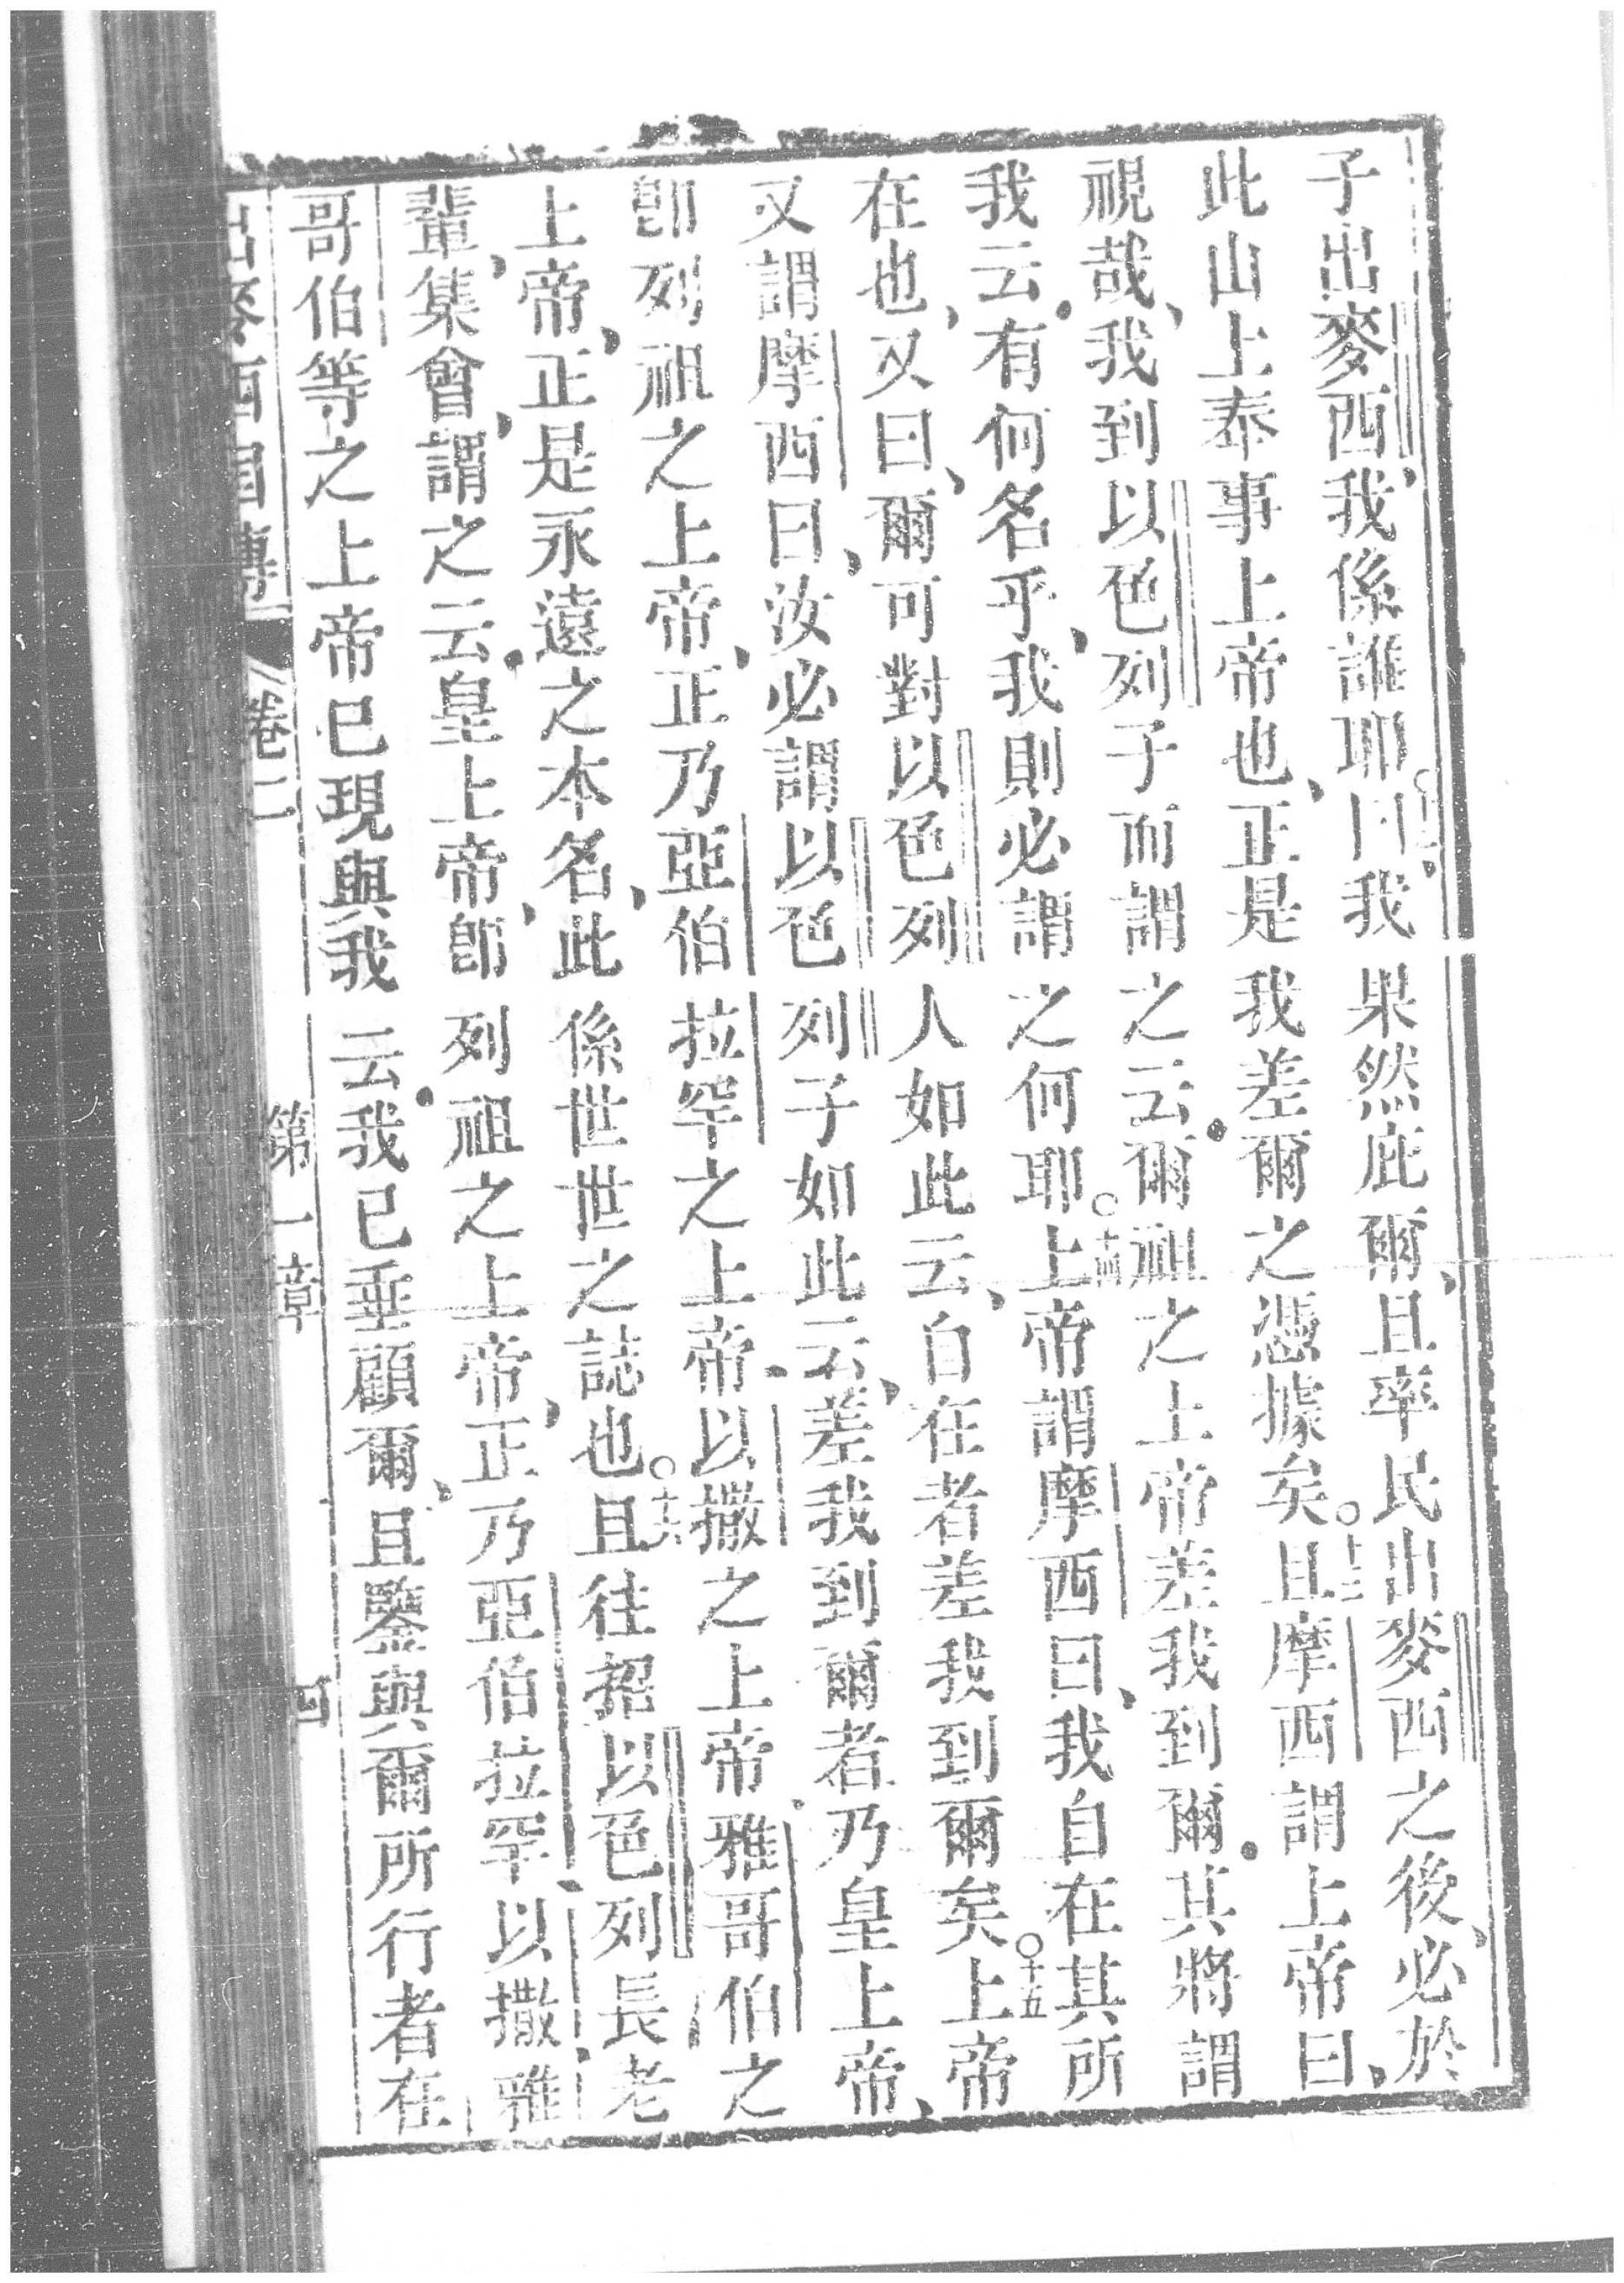 子出麥西、我係誰耶○十二曰我果然庇爾、且率民出麥西之後、必於
此山上奉事上帝也、正是我差爾之憑據矣○十三且摩西謂上帝曰、
視哉、我到以色列子而謂之云．爾祖之上帝差我到爾．其將謂
我云．有何名乎、我則必謂之何耶○十四上帝謂摩西曰、我自在其所
在也、又曰、爾可對以色列人如此云、自在者差我到爾矣○十五上帝
又謂摩西曰、汝必謂以色列子如此云、差我到爾者乃皇上帝、
卽列祖之上帝、正乃亞伯拉罕之上帝、以撒之上帝、雅哥伯之
上帝、正是永遠之本名、此係世世之誌也○十六且往招以色列長老
輩、集會、謂之云．皇上帝、卽列祖之上帝、正乃亞伯拉罕、以撒、雅
哥伯等之上帝已現與我云．我已垂顧爾、且鑒與爾所行者在
出麥西國傳 卷二 第一章 四